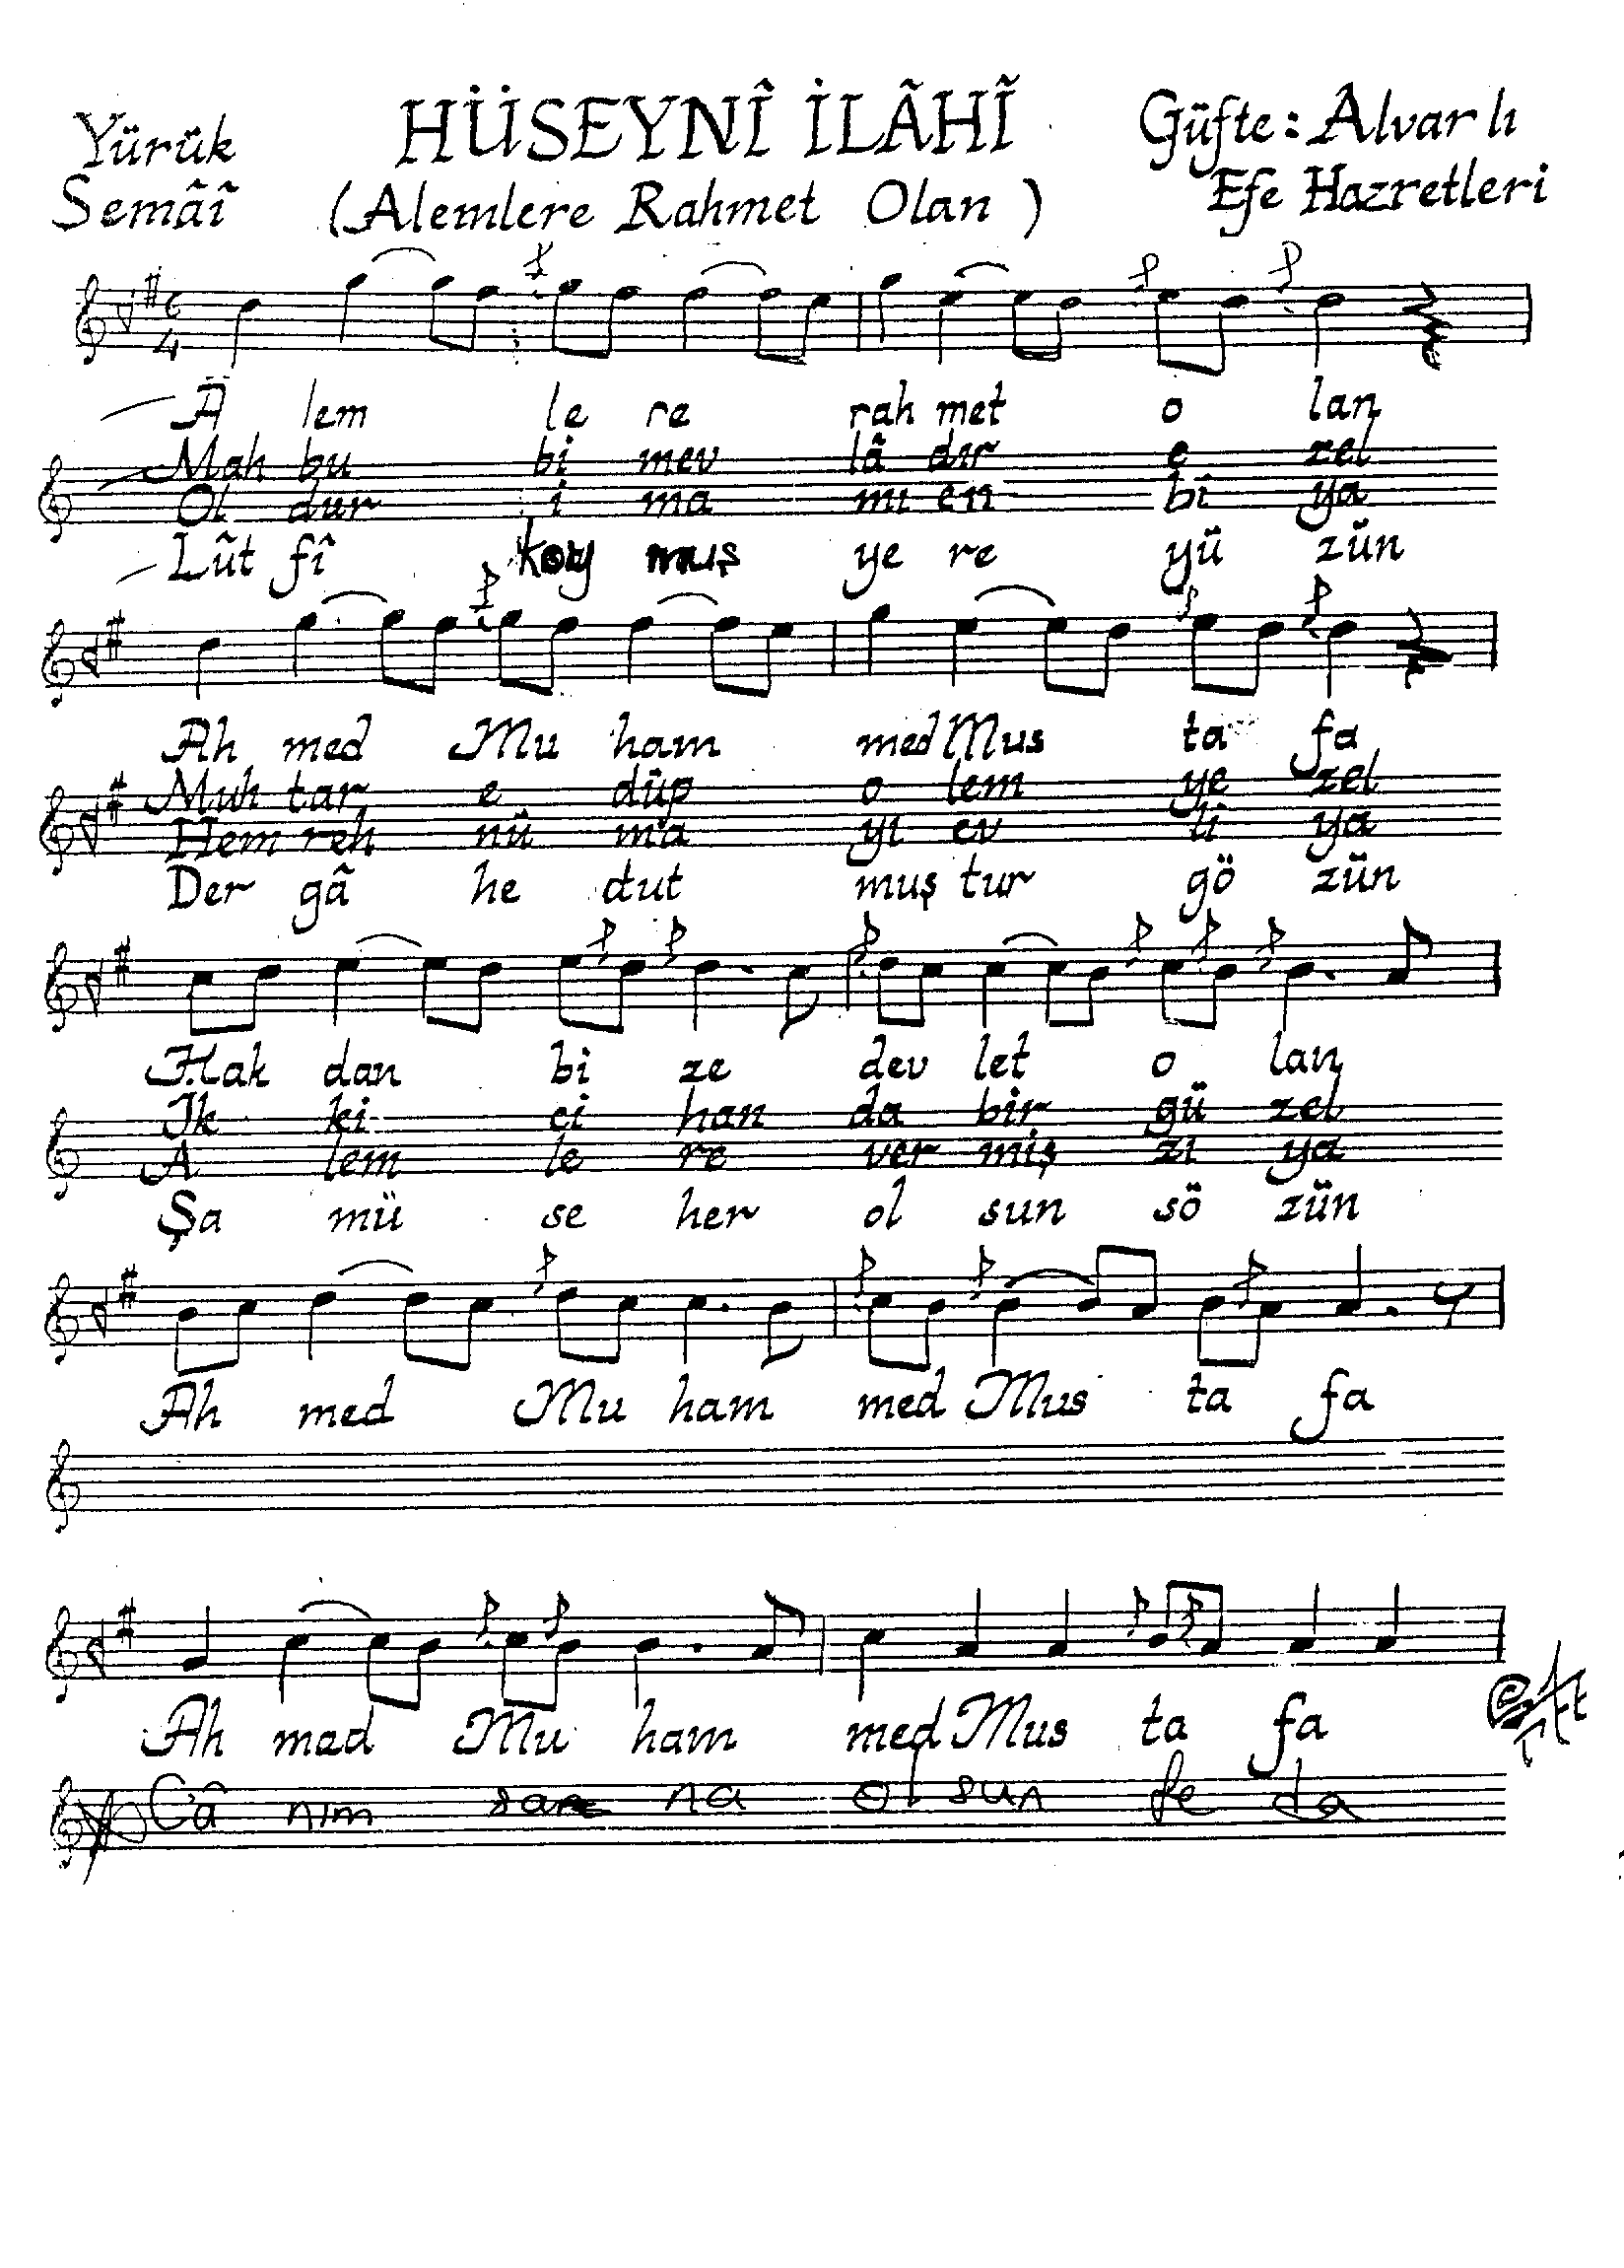 Yürük HÜSEYNÎ İLÂHÎ Güfte: Alvarlı
Semâî (Alemlere Rahmet Olan) Efe Hazretleri
6
4
A lem le re rah met o lan
Mah bu bi mev lâ dır e zel
Ol dur i ma mı en bi ya
Lût fî koy muş ye re yü zün
Ah med Mu ham med Mus ta fa
Muh tar e düp o lem ye zel
Hem reh nü ma yı ev li ya
Der gâ he dut muş tur gö zün
Hak dan bi ze dev let o lan
İk ki ci han da bir gü zel
A lem le re ver miş zı ya
Şa mü se her ol sun sö zün
Ah med Mu ham med Mus ta fa
Ah med Mu ham med Mus ta fa
Câ nım sa na ol sun fe da